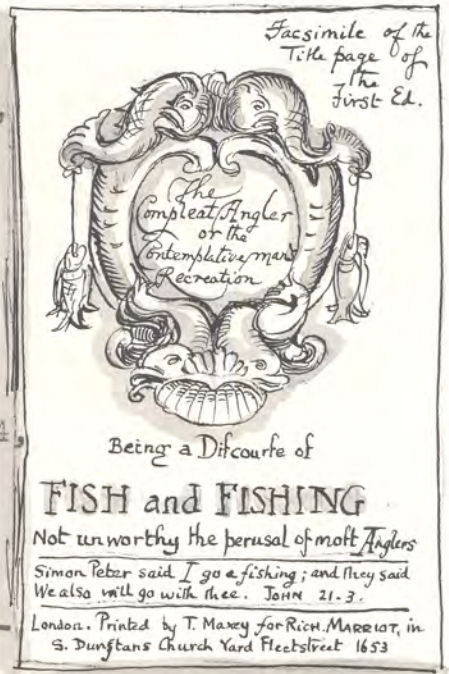 Facsimile of the
Title page of
the
First Ed.
The
Compleat Angler
or the
Contemplative man's
Recreation
Being a Diſcourſe of
FISH and FISHING
Not unworthy the perusal of moſt Anglers
Simon Peter said I go a fishing; and they said
We also will go with thee. JOHN 21-3.
London. Printed by T. Maxey for RICH. MARRIOT, in
S. Dunſtans Church Yard Fleetstreet 1653